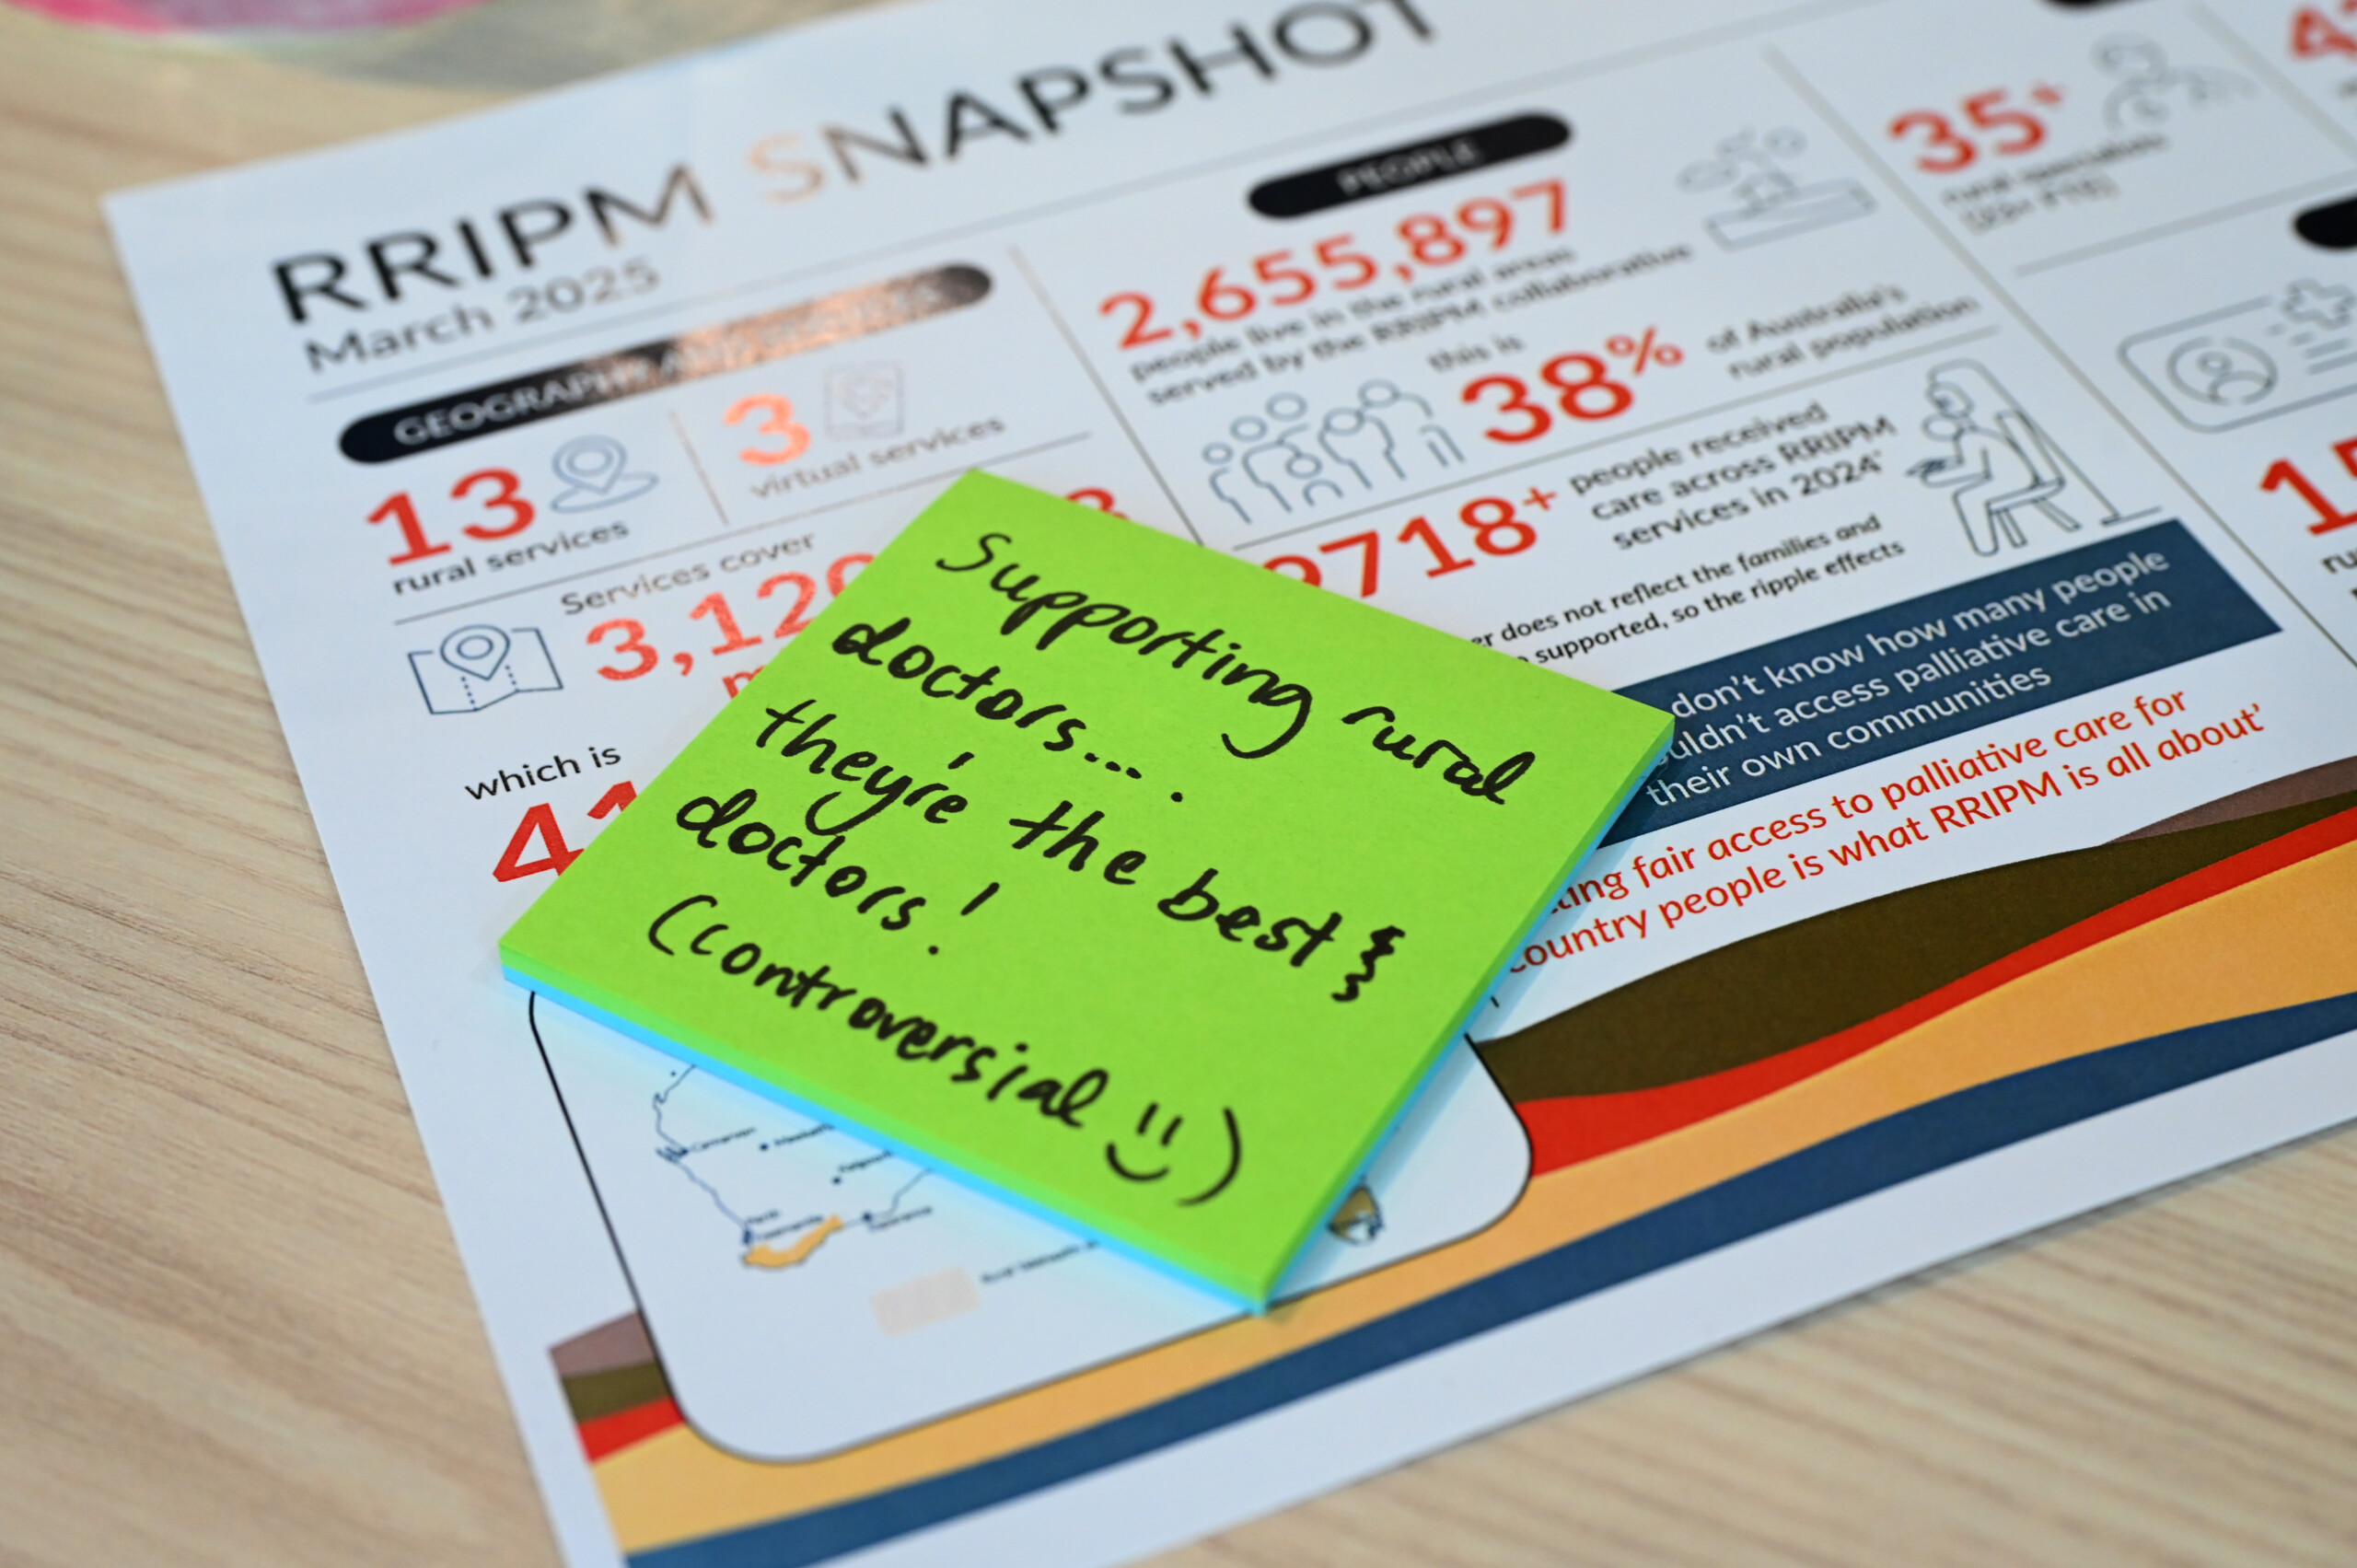 RRIPM SNAPSHOT
March 2025
GEOGRAPHY AND SERVICES
13
rural services
3
virtual services
Services cover
3,120
which is
41
PEOPLE
2,655,897
people live in the rural areas
served by the RRIPM collaborative
this is
38% of Australia's
rural population
9718+ people received
care across RRIPM
services in 2024*
does not reflect the families and
supported, so the ripple effects
don't know how many people
access palliative care in
their own communities
fair access to palliative care for
country people is what RRIPM is all about'
35+
rural specialists
Supporting rural
doctors....
they're the best }
doctors!
(controversial )
Carnarvon
Perth